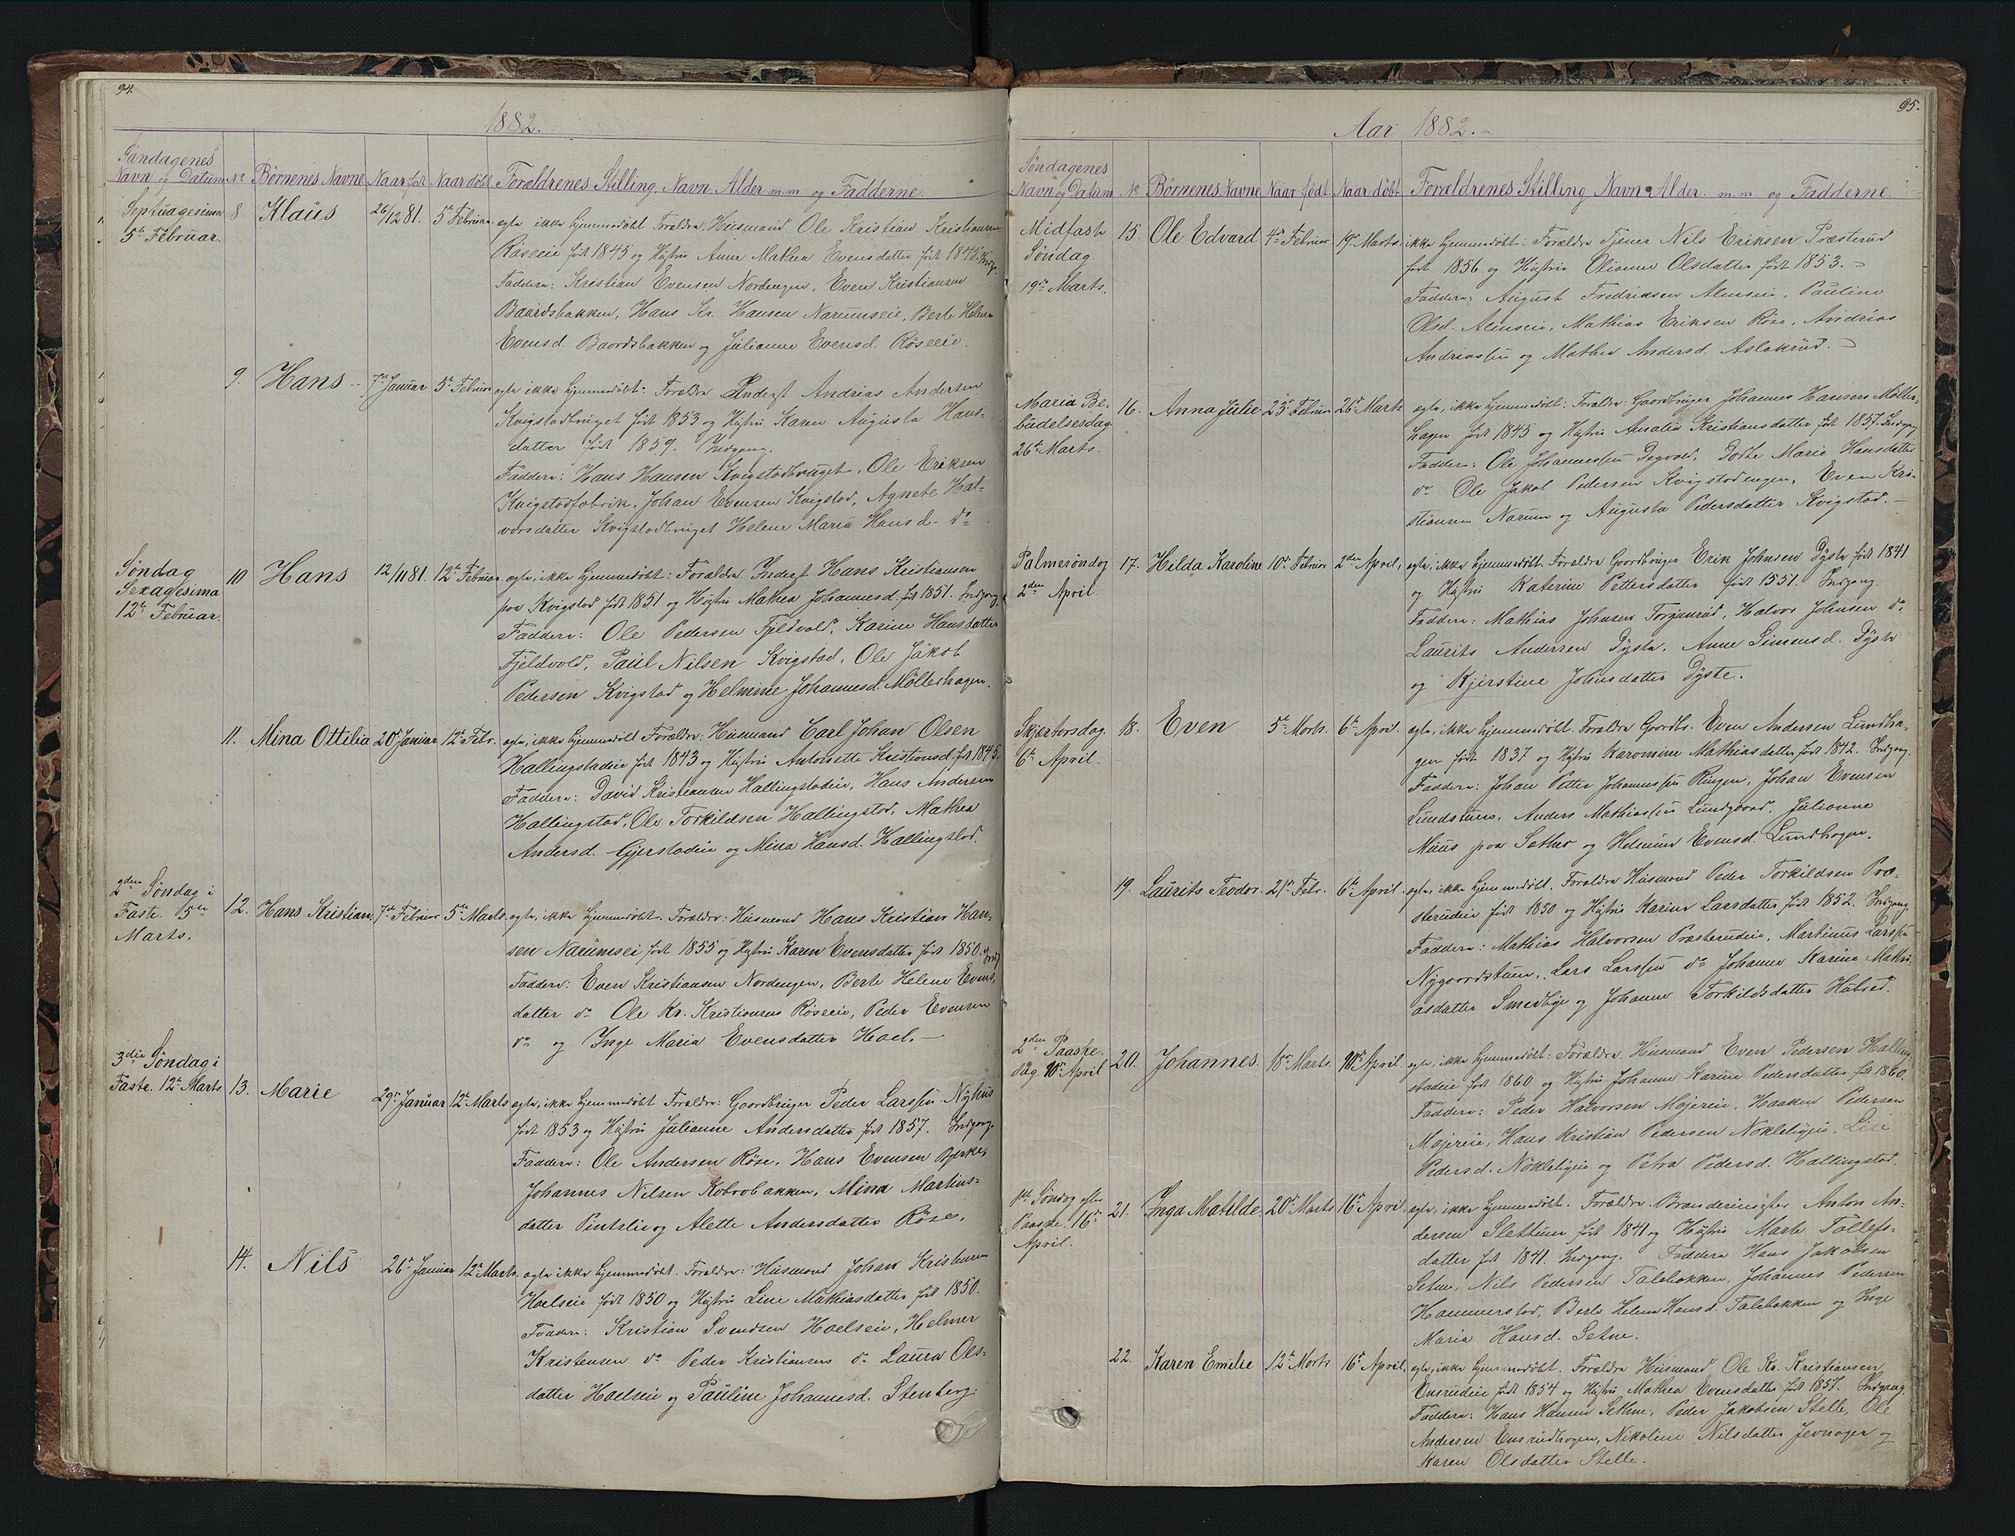 94.
1882.
Søndagenes
Navn og Datum No Børnenes Navne Naar født Naar døbt Forældrenes Stilling, Navn, Alder m.m. og Fadderne.
Septuagesima 8 Klaus 26/12 81. 5te Februar. egte ikke hjemmedøbt. Forældre: Husmand Ole Kristian Kristiansen
5te Februar. Røseeie født 1845 og Hustru Anne Mathea Evensdatter født 1845. Indg.
Faddere: Kristian Evensen Nordengen, Even Kristiansen
Baardsbakken, Hans Kr. Hansen Narumseie, Berte Helene
Evensd. Baardsbakken og Julianne Evensd. Røseeie.
9. Hans 7de Januar 5te Februar egte ikke hjemmedøbt: Forældre Inderst Andrias Andersen
Kvigstadbruget født 1853 og Hustru Karen Augusta Hans-
datter født 1859. Indgang.
Faddere: Hans Hansen Kvigstadbruget, Ole Eriksen
Kvigstadfabrik, Johan Evensen Kvigstad, Agnete Hal-
vorsdatter Kvigstadbruget Helene Maria Hansd. do
Søndag 10 Hans 12/11 81. 12te Februar. egte, ikke hjemmedøbt: Forældre Inderst Hans Kristiansen
Sexagesima paa Kvigstad født 1851 og Hustru Mathea Johannesd. født 1851. Indgang.
12te Februar. Faddere: Ole Pedersen Fjeldvold, Karine Hansdatter
Fjeldvold, Paul Nilsen Kvigstad, Ole Jakob
Pedersen Kvigstad og Helmine Johannesd. Møllerhagen.
11. Mina Ottilia 20de Januar 12te Febr. egte, ikke hjemmedøbt Forældre: Husmand Carl Johan Olsen
Hallingstadeie født 1843 og Hustru Antonette Kristiansd. født 1845.
Faddere: David Kristiansen Hallingstadeie, Hans Andersen
Hallingstad, Ole Torkildsen Hallingstad, Mathea
Andersd. Gjerstadeie og Mina Hansd. Hallingstad.
2den Søndag i
Faste. 5te 12. Hans Kristian 7de Februar 5te Marts. egte, ikke hjemmedøbt. Forældre: Husmand Hans Kristian Han-
Marts. sen Naumsei født 1855 og Hustru Karen Evensdatter født 1850. Indg.
Faddere: Even Kristiansen Nordengen, Berte Helene Evens-
datter do Ole Kr. Kristiansen Røseeie, Peder Evensen
do og Inge Maria Evensdatter Hoel.
3die Søndag i
Faste. 12te Marts. 13. Marie 29de Januar 12te Marts egte, ikke hjemmedøbt Forældre: Gaardbruger Peder Larssen Nyhus
født 1853 og Hustru Julianne Andersdatter født 1857. Indgang.
Faddere: Ole Andersen Røse, Hans Evensen Bjerke,
Johannes Nilsen Kobrobakken, Mina Martins-
datter Pintsli og Alette Andersdatter Røse.
14. Nils 26de Januar 12te Marts. egte ikke hjemmedøbt. Forældre: Husmand Johan Kristensen
Hoelseie født 1850 og Hustru Line Mathiasdatter født 1850.
Faddere: Kristian Svendsen Hoelseie, Helmer
Kristensen do Peder Kristiansen do Laura Ols-
datter Hoelseie og Pauline Johannesd. Stenberg.
95.
Aar 1882.
Søndagenes
Navn og Datum No Børnenes Navne Naar født Naar døbt Forældrenes Stilling Navn Alder m.m og Fadderne
Midfaste 15. Ole Edvard 4de Februar 19de Marts. ikke hjemmedøbt: Forældre Tjener Nils Eriksen Præsterud
Søndag født 1856 og Hustru Oliane Olsdatter født 1853.
19de Marts. Faddere: August Fredriksen Almseie, Pauline
Olsd. Almseie, Mathias Eriksen Røse, Andrias
Andriassen og Mathea Andersd. Aslakrud.
Maria Be- 16. Anna Julie 23de Februar 26de Marts egte, ikke hjemmedøbt: Forældre: Gaardbruger Johannes Hansen Møller-
budelsesdag hagen født 1845 og Hustru Amalia Kristiansdatter født 1857. Indgang
26de Marts. Faddere: Ole Johannessen Degvold, Dorthe Marie Hansdatter
do Ole Jakob Pedersen Kvigstadengen, Even Kri-
stiansen Narum og Augusta Pedersdatter Kvigstad.
Palmesøndag 17. Hilda Karoline 10de Februar 2den April, egte, ikke hjemmedøbt. Forældre Gaardbruger Erik Johnsen Dyste født 1841
2den April. og Hustru Katerine Pettersdatter født 1551. Indgang.
Faddere: Mathias Johnsen Torgunrud, Halvor Johnsen do
Laurits Andersen Dyste, Anne Simensd. Dyste
og Kjerstine Johnsdatter Dyste.
Skjertorsdag 18. Even 5te Marts. 6te April. egte, ikke hjemmedøbt. Forældre Gaardbr. Even Andersen Lundha-
6te April. gen født 1837 og Hustru Karomine Mathiasdatter født 1842. Indgang.
Faddere: Johan Petter Johannessen Ringen, Johan Evensen
Lundstuen, Anders Mathiassen Lundgaard, Julianne
Maus paa Sether og Helmine Evensd. Lundhagen.
19. Laurits Teodor. 21de Febr. 6te April. egte, ikke hjemmedøbt. Forældre Husmand Peder Torkildsen Præ-
sterudeie født 1850 og Hustru Karine Larsdatter født 1852. Indgang.
Faddere: Mathias Halvorsen Præsterudeie, Martinus Larssen
Nygaardstuen, Lars Larssen do Johanne Karine Mathi-
asdatter Smedhje og Johanne Torkildsdatter Habred.
2den Paaske-
dag 10de April 20. Johannes. 18de Marts. 10de April. egte, ikke hjemmedøbt: Forældre: Husmand Even Pedersen Halling-
stadeie født 1860 og Hustru Johanne Karine Pedersdatter født 1860.
Faddere: Peder Halvorsen Majereie, Haaken Pedersen
Majereie, Hans Kristian Pedersen Nøkleligeie, Lise
Pedersd. Nøkleligeie og Petra Pedersd. Hallingstad.
1ste Søndag efter 21. Inga Matilde 20de Marts 16de April. egte, ikke hjemmedøbt. Forældre Brændevinsfter Anton An-
Paaske. 16de dersen Slettum født 1841 og Hustru Marte Tollefs-
April. datter født 1841. Indgang. Faddere Hans Jakobsen
Setne, Nils Pedersen Talebakken, Johannes Pedersen
Hammerstad, Berte Helene Hansd. Talebakken og Inge
Maria Hansd. Setne.
22. Karen Emilie 12te Marts 16de April. egte, ikke hjemmedøbt. Forældre Husmand Ole Kr. Kristiansen
Ensrudeie født 1854 og Hustru Mathea Evensdatter født 1857. Indgang.
Faddere: Hans Hansen Sethne, Peder Jakobsen Stelle, Ole
Andersen Ensrudhagen, Nikoline Nilsdatter Jevnager og
Karen Olsdatter Stelle.